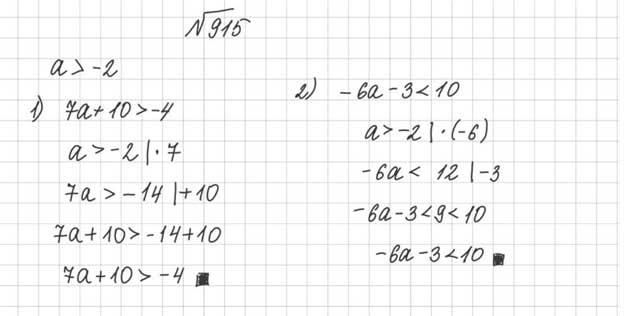 √915
a > -2
1) 7a + 10 > -4
a > -2 | · 7
7a > -14 | +10
7a + 10 > -14 + 10
7a + 10 > -4 ■
2) -6a - 3 < 10
a > -2 | · (-6)
-6a < 12 | -3
-6a - 3 < 9 < 10
-6a - 3 < 10 ■